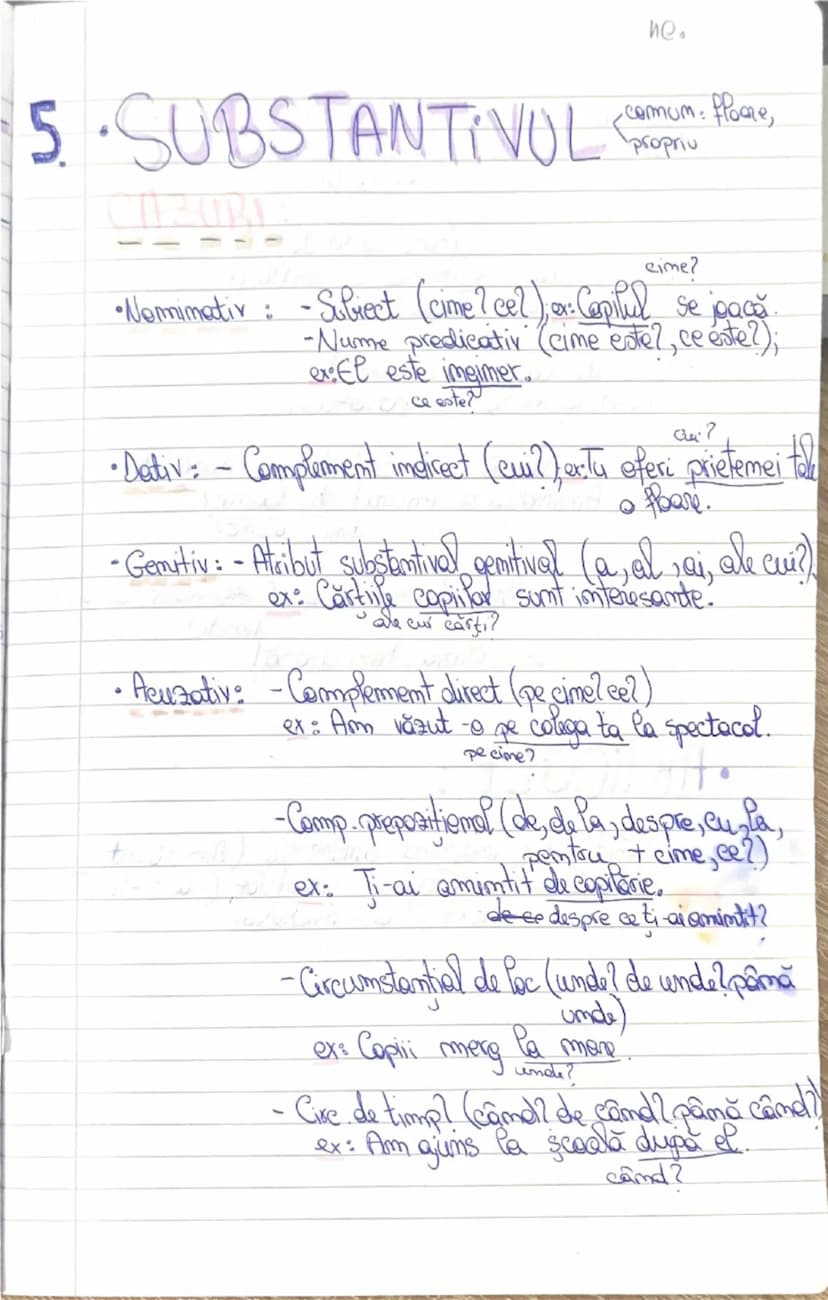 ne.
5. • SUBSTANTIVUL < comum: floare,
propriu
CAZURI
cine?
• Nominativ: - Subiect (cine? ce?), ex: Copilul se joacă.
- Nume predicativ (cine este?, ce este?);
ex: El este inginer.
ce este?
cui?
• Dativ: - Complement indirect (cui?), ex: Tu oferi prietenei tale
o floare.
• Genitiv: - Atribut substantival genitival (a, al, ai, ale cui?)
ex: Cărțile copiilor sunt interesante.
ale cui cărți?
• Acuzativ: - Complement direct (pe cine? ce?)
ex: Am văzut-o pe colega ta la spectacol.
pe cine?
- Comp. prepozițional (de, de la, despre, cu, la,
pentru + cine, ce?)
ex: Ți-ai amintit de copilărie.
de ce despre ce ți-ai amintit?
- Circumstanțial de loc (unde? de unde? până
unde)
ex: Copii merg la mare.
unde?
- Circ. de timp? (când? de când? până când?)
ex: Am ajuns la școală după el.
când?